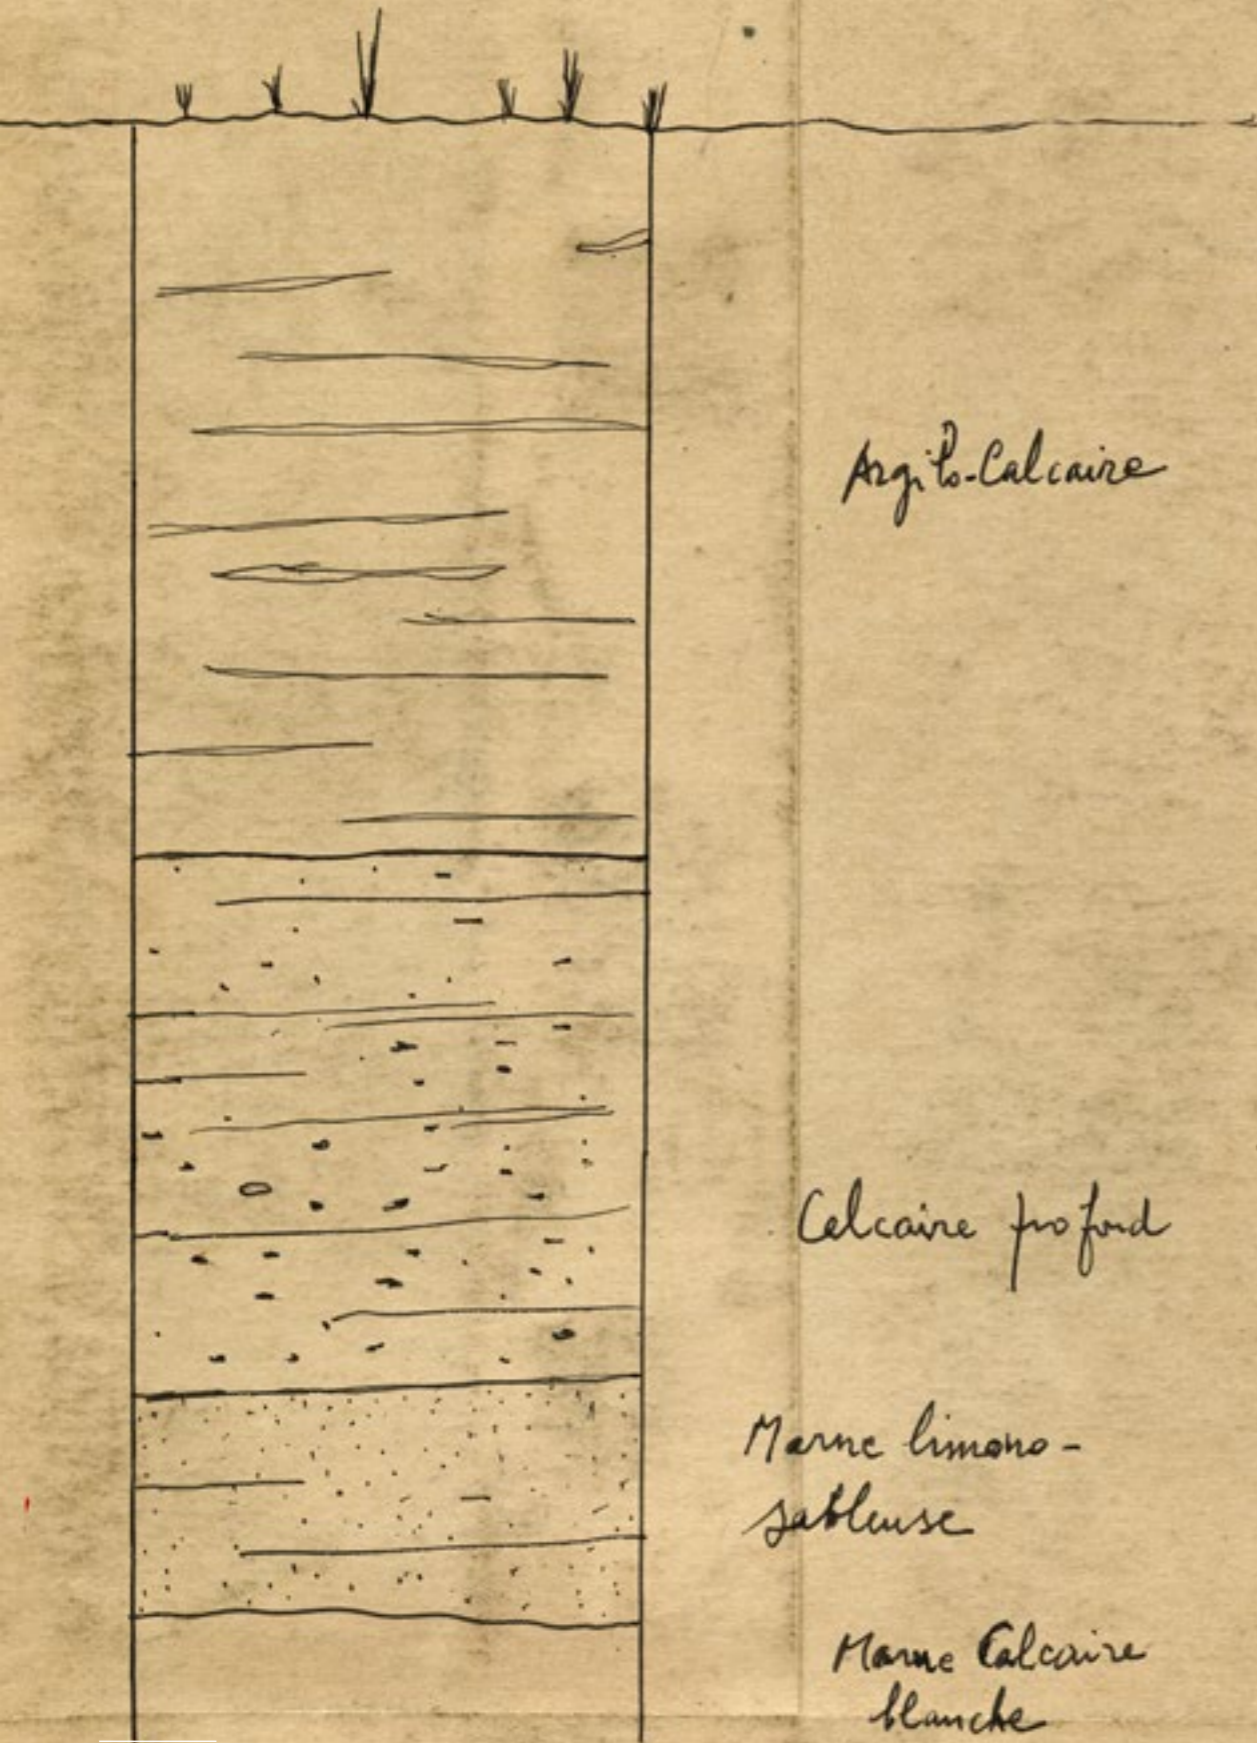 Argilo-Calcaire
Calcaire profond
Marne limono-
sableuse
Marne Calcaire
blanche